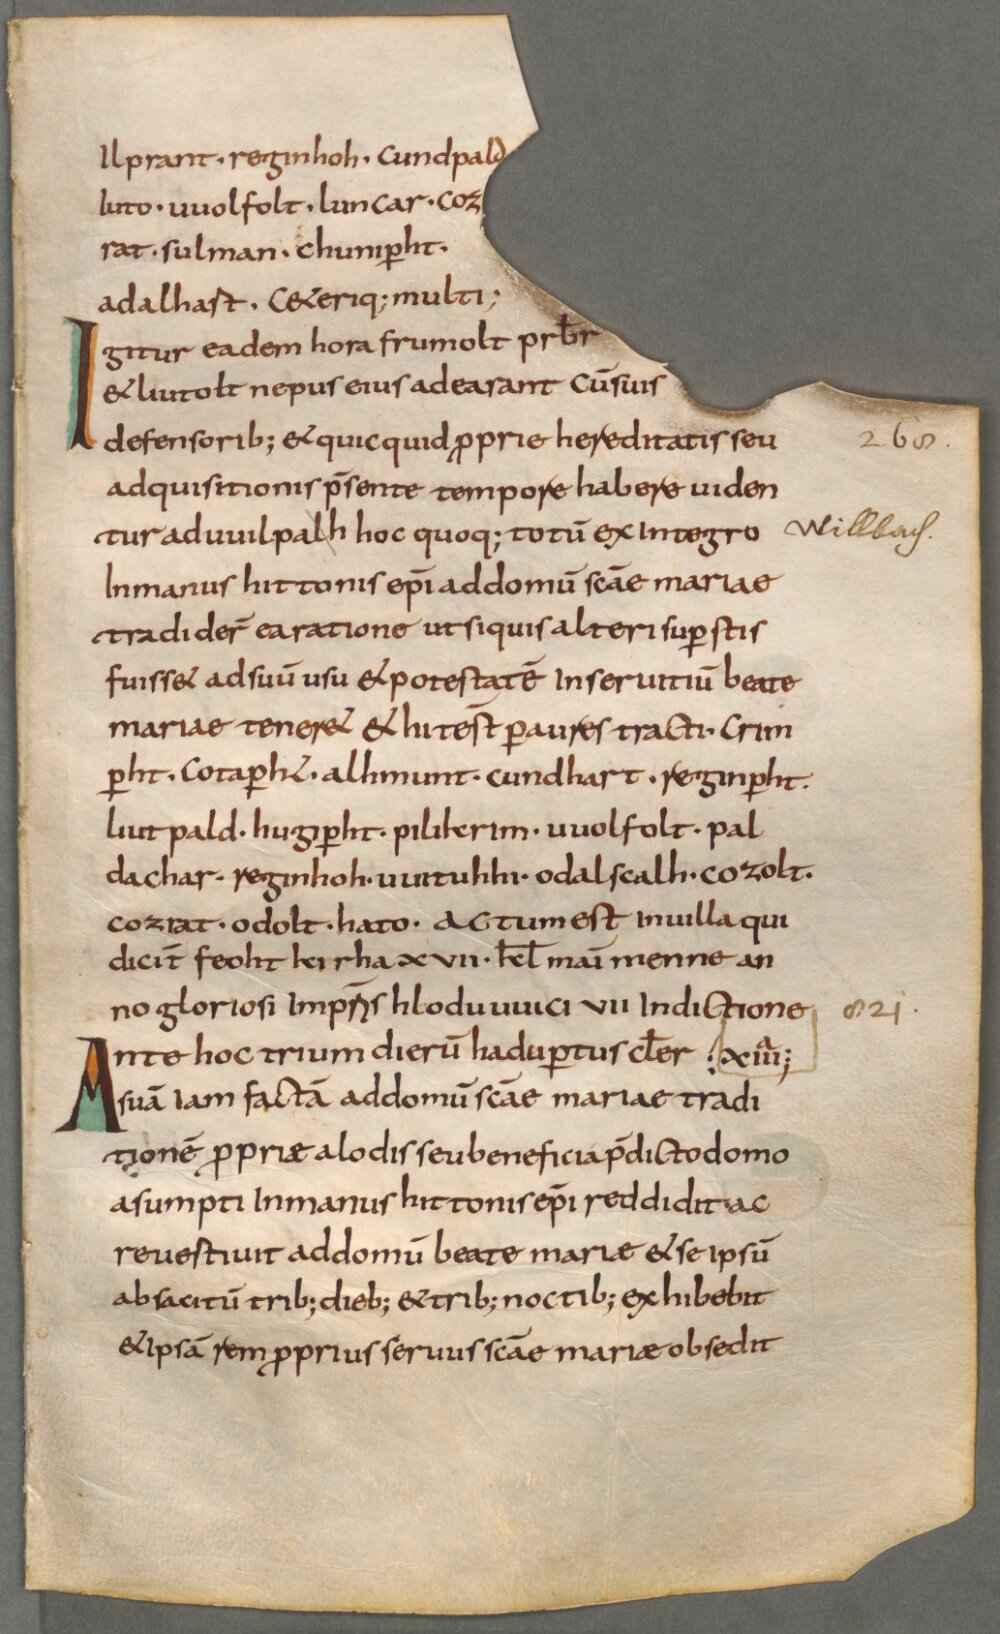 Ilprant · reginhoh · Cundpald
liuto · uuolfolt · luncar · coz
rat · sulman · chunip̄ht ·
adalhast · C&eriq; multi;
Igitur eadem hora frumolt prb̄r
& liutolt nepus eius adearant Cū suis
defensorib; & quicquid ꝓprie hereditatis seu
adquisitionis p̄sente tempore habere uiden
tur ad uuilpalh hoc quoq; totū ex Integro
Inmanus hittonis ep̄i addomū scāe mariae
tradider̄ ea ratione ut siquis alteri sup̲stis
fuiss& ad suū usu & potestatē Inseruitiū beate
mariae tener& & hi tes̄t ꝑaures tracti · Crim
ꝑht · Cotaꝑh& · alhmunt · cundhart · reginꝑht ·
liutpald · hugiꝑht · pilihrim · uuolfolt · pal
dachar · reginhoh · uuituhhi · odalscalh · cozolt ·
cozrat · odolt · hato · Actum est Inuilla qui
dicit̄ feoht kirrha xvii · kl̄ mai menne an
no gloriosi Imp̄r̄s hloduuuici vii Indictione
Ante hoc trium dierū haduꝑtus cl̄er : xiiii;
suā Iam factā addomū scāe mariae tradi
tionē ꝓpriæ alodis seu beneficia p̄dicto domo
asumpti Inmanus hittonis ep̄i reddidit ac
reuestiuit addomū beate mariæ & se Ipsū
absacitū trib; dieb; & trib; noctib; exhibebit
& Ipsā rem ꝓprius seruus scāe mariæ obsedit
268.
Willbach.
821.